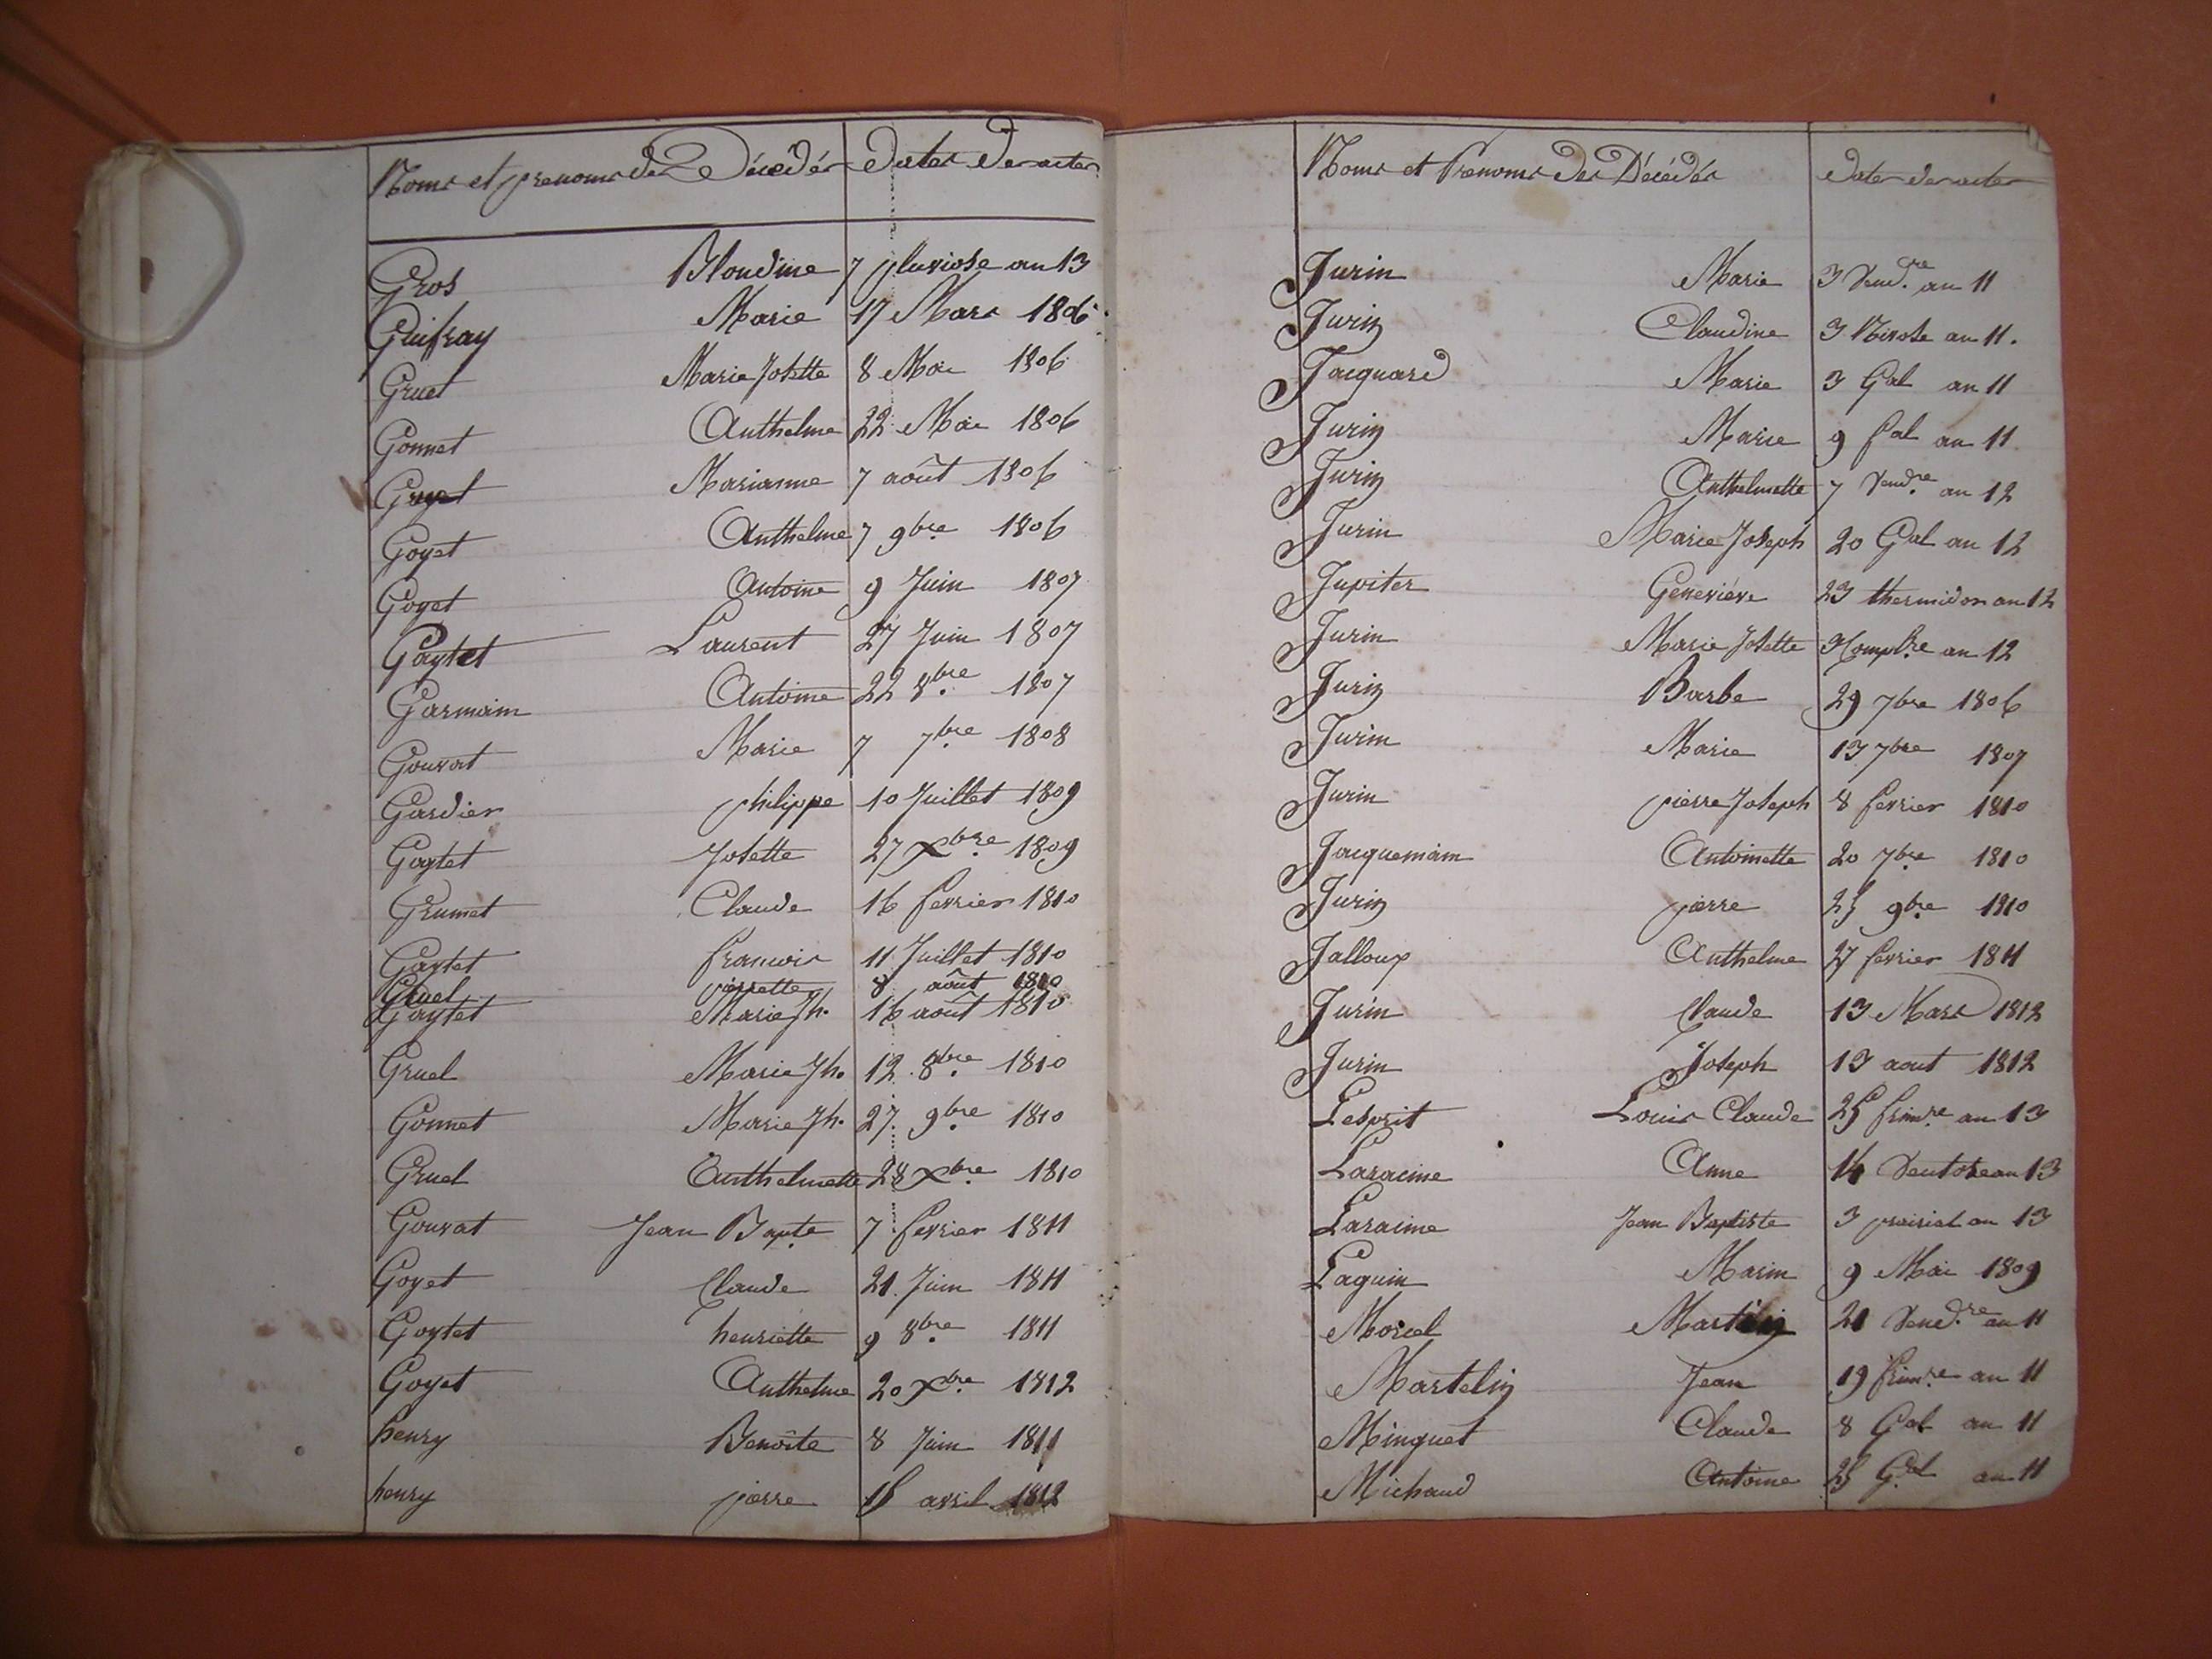 Noms et prenoms des Décédés Dates des actes
Gros Blondine 7 pluviose an 13
Guifray Marie 17 Mars 1806
Gruet Marie Josette 8 Mai 1806
Gonnet Anthelme 22 Mai 1806
Marianne 7 août 1806
Goyet Anthelme 7 9bre 1806
Goyet Antoine 9 Juin 1807
Gaytet Laurent 27 Juin 1807
Garmain Antoine 22 8bre 1807
Gouvat Marie 7 7bre 1808
Gardier philippe 10 Juillet 1809
Gaytet Josette 27 Xbre 1809
Grumet Claude 16 fevrier 1810
Gaytet francois 11 Juillet 1810
Gruel pierrette 8 août 1810
Gaytet Marie Jh. 16 août 1810
Gruel Marie Jh. 12 8bre 1810
Gonnet Marie Jh. 27 9bre 1810
Gruel Anthelmette 28 Xbre 1810
Gouvat Jean Bapte 7 fevrier 1811
Goyet Claude 21 Juin 1811
Goytet henriette 9 8bre 1811
Goyet Anthelme 20 Xbre 1812
henry Benoîte 8 Juin 1811
henry pierre 15 avril 1812
Noms et Prenoms des Décédés Dates des actes
Jurin Marie 3 Vend.re an 11
Jurin Claudine 3 Nivose an 11.
Jacquard Marie 3 Gal an 11
Jurin Marie 9 fal an 11
Jurin Anthelmette 7 Vend.re an 12
Jurin Marie Joseph 20 Gal an 12
Jupiter Geneviéve 23 thermidor an 12
Jurin Marie Josette an 12
Jurin Barbe 29 7bre 1806
Jurin Marie 13 7bre 1807
Jurin pierre Joseph 8 fevrier 1810
Jacquemain Antoinette 20 7bre 1810
Jurin pierre 25 9bre 1810
Jalloux Anthelme 27 fevrier 1811
Jurin Claude 13 Mars 1812
Jurin Joseph 13 aout 1812
Lesprit Louis Claude 25 frim.re an 13
Laracine Anne 14 Ventose an 13
Laracine Jean Baptiste 3 prairial an 13
Paquin Marin 9 Mai 1809
Morel 21 Vend.re an 11
Martelin Jean 19 frim.re an 11
Minguet Claude 8 Gal an 11
Michaud Antoine 25 Gal an 11